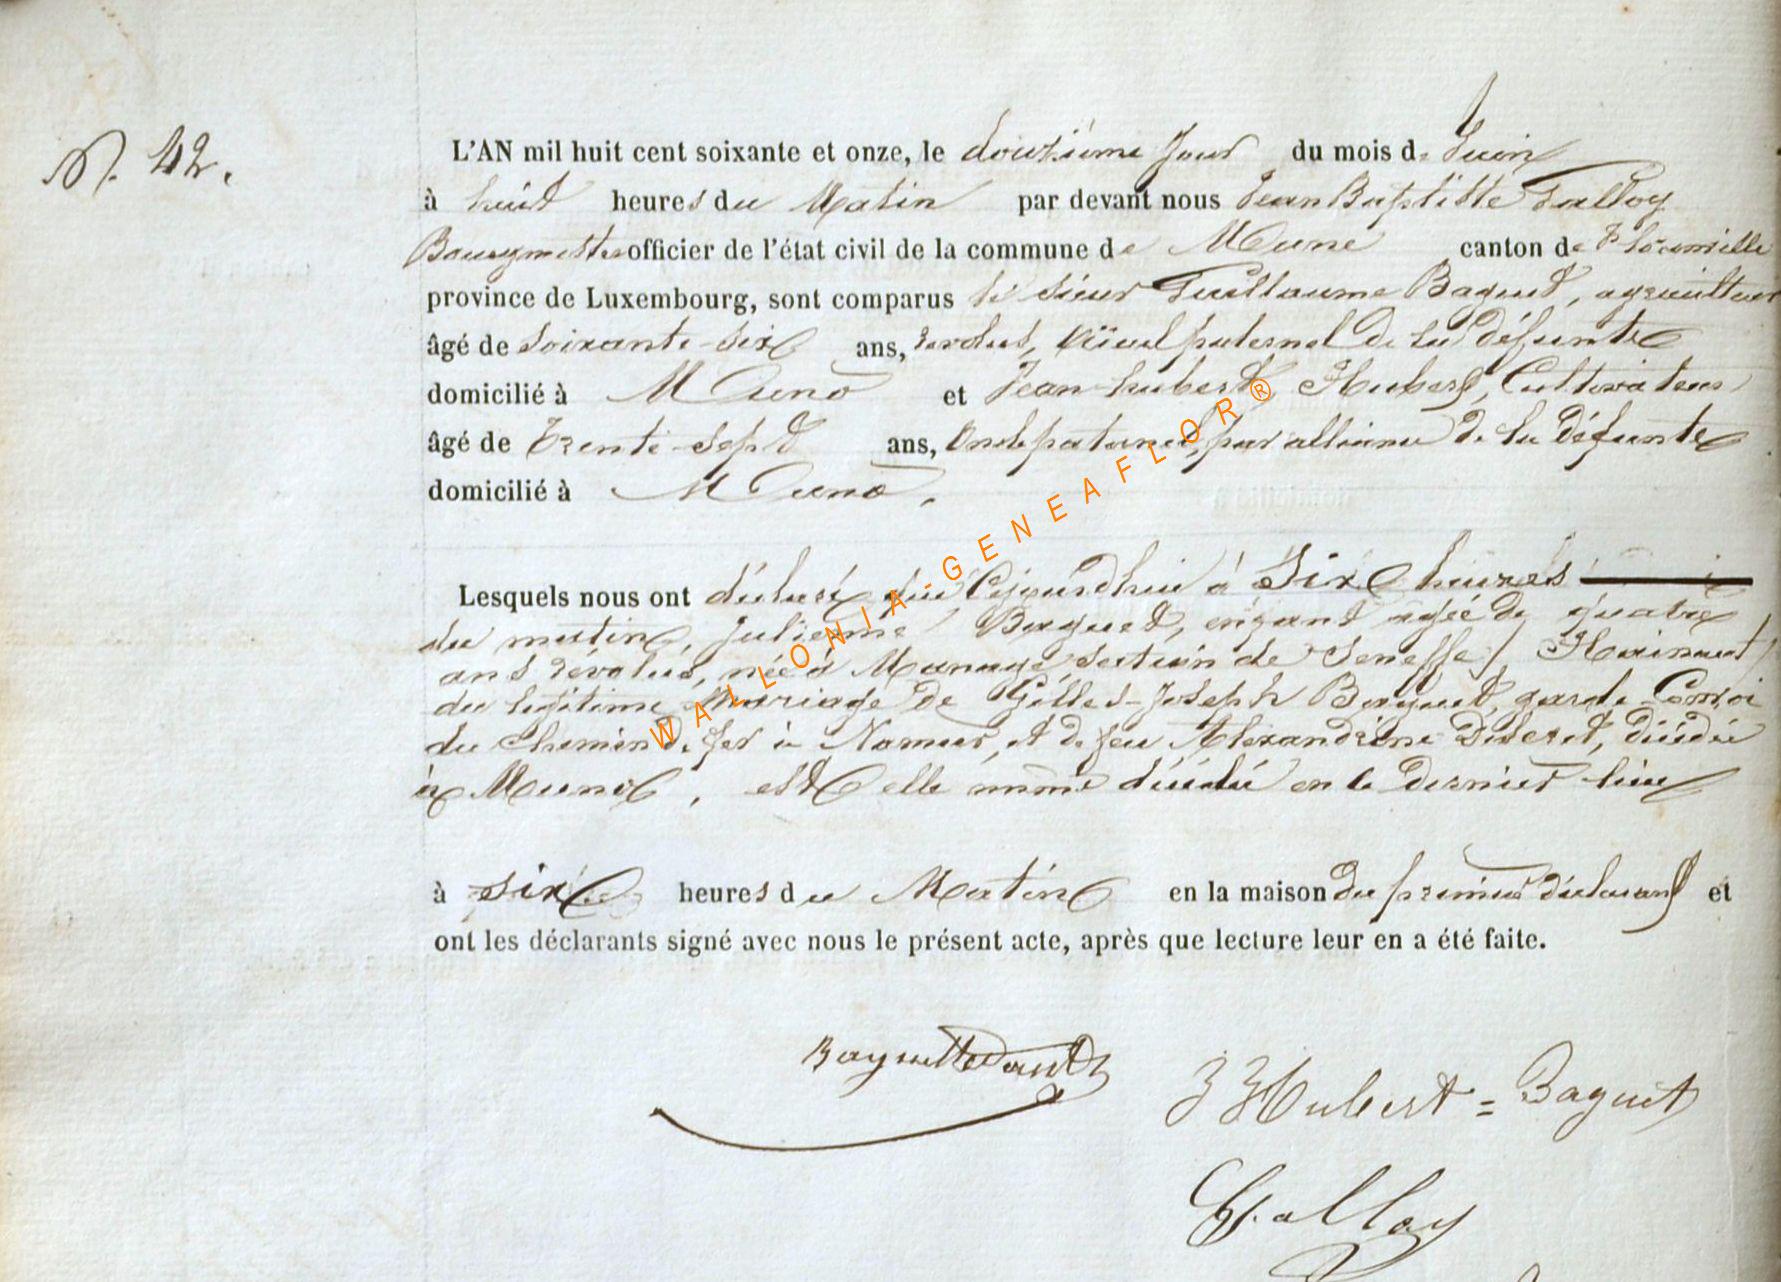 N. 42.
L'AN mil huit cent soixante et onze, le douzième jour du mois de Juin
à huit heures du Matin par devant nous Jean Baptiste Falloy
Bourgmestre officier de l'état civil de la commune de Muno canton de Florenville
province de Luxembourg, sont comparus le sieur Guillaume Baguet, agriculteur
âgé de soixante-six ans, révolus, Aïeul paternel de la défunte
domicilié à Muno et Jean-hubert Hubert, Cultivateur
âgé de Trente-Sept ans, Oncle paternel, par alliance de la défunte
domicilié à Muno.
Lesquels nous ont déclaré que Cejourdhui à Six heures
du matin, Julienne Baguet, enfant agée de quatre
ans révolus, née à Manage, section de Seneffe / Hainaut /
du légitime mariage de Gilles-Joseph Baguet, garde-Convoi
du Chemin de fer à Namur, et de feu Alexandrine, décédée
à Muno, est elle même décédée en ce dernier lieu
à six heures du Matin en la maison du premier déclarant et
ont les déclarants signé avec nous le présent acte, après que lecture leur en a été faite.
Baguet
J J Hubert = Baguet
Falloy
WALLONIA-GENEAFLOR®